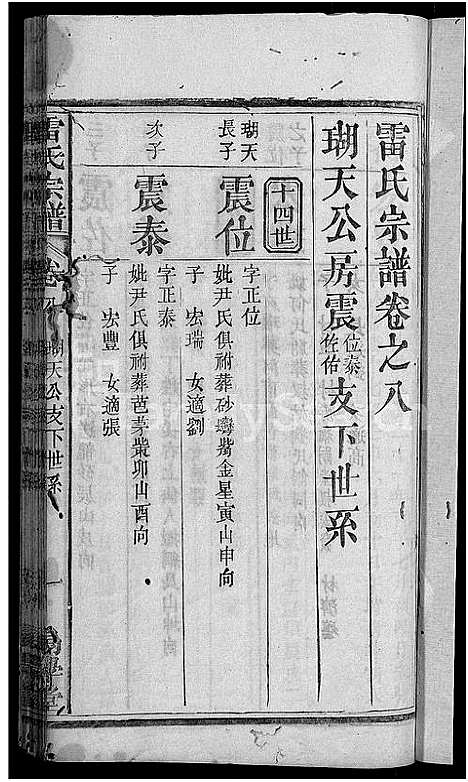 雷氏宗譜卷之八
瑚天公房震位泰佐佑支下世系
十四世
瑚天長子
震位
字正位
妣尹氏俱祔葬砂灣嘴金星寅山申向
子 宏瑞 女適劉
次子
震泰
字正泰
妣尹氏俱祔葬芭茅柴卯山酉向
子 宏豐 女適張
雷氏宗譜
瑚天公支下世系
一